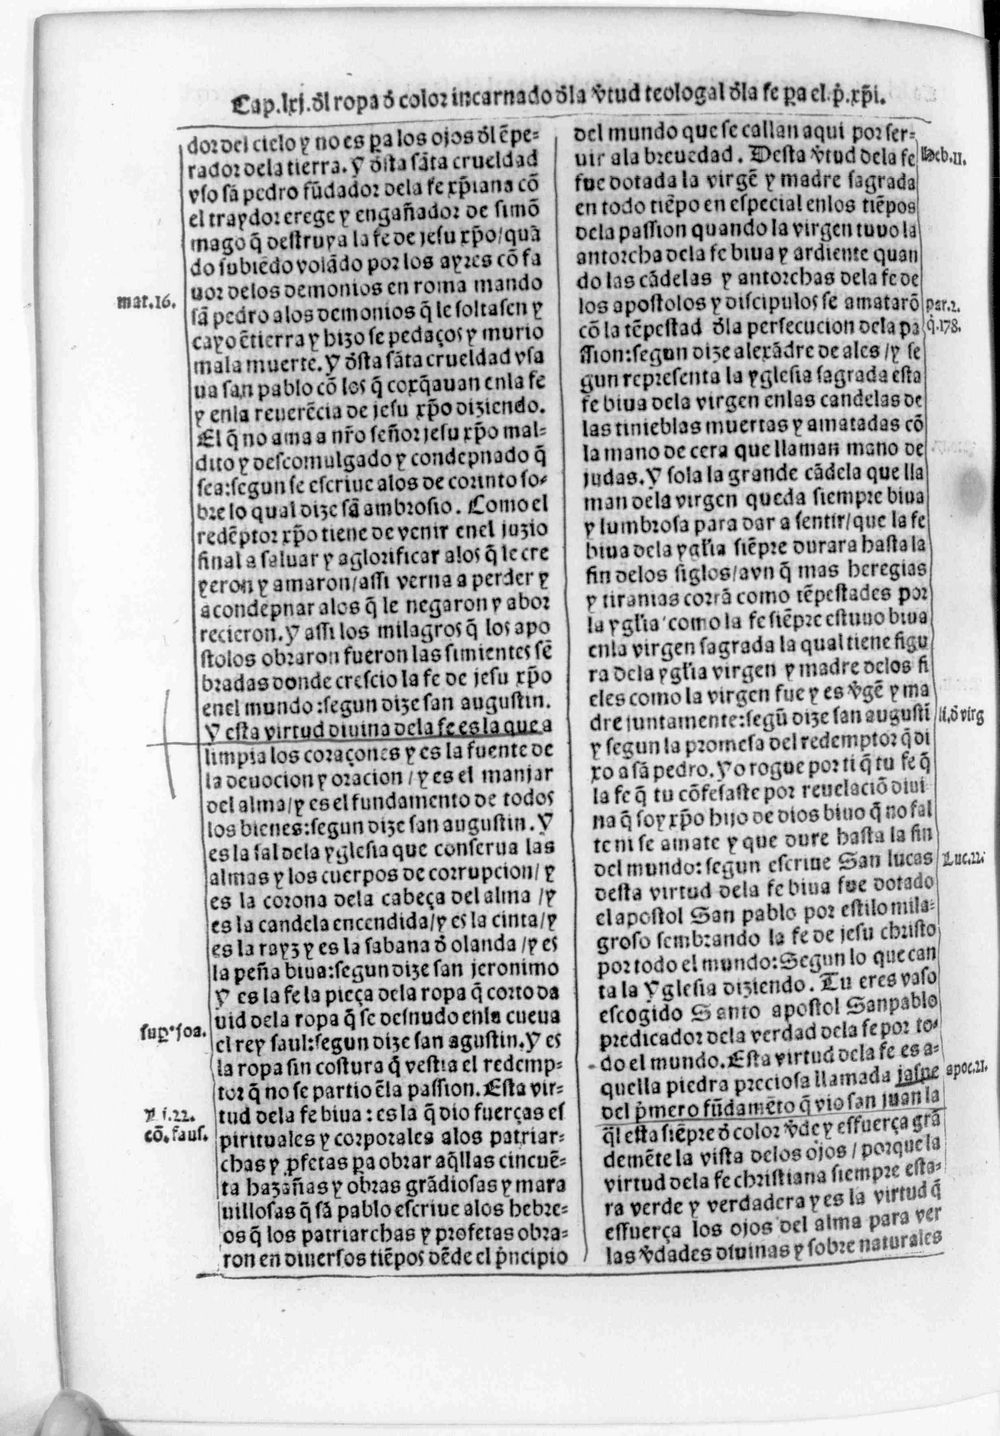 Cap.lxj.ðl ropa ð color incarnado ðla v̄tud teologal ðla fe pa el.p̄.xp̄i.
dor del cielo y no es pa los ojos ðl ẽpe-
rador dela tierra. Y ðsta sãta crueldad
vso sã pedro fũdador dela fe xp̄iana cõ
el traydor erege y engañador de simõ
mago q̃ destruya la fe de jesu xp̄o/quã
do subiẽdo volãdo por los ayres cõ fa
uor delos demonios en roma mando
mat.16.
sã pedro alos demonios q̃ le soltasen y
cayo ẽ tierra y hizo se pedaços y murio
mala muerte. Y ðsta sãta crueldad vsa
ua san pablo cõ los q̃ coxq̃auan enla fe
y enla reuerẽcia de jesu xp̄o diziendo.
El q̃ no ama a nr̃o señor jesu xp̄o mal-
dito y descomulgado y condepnado q̃
sea: segun se escriue alos de corinto so-
bre lo qual dize sã ambrosio. Como el
redẽptor xp̄o tiene de venir enel juzio
final a saluar y a glorificar alos q̃ le cre
yeron y amaron/assi verna a perder y
a condepnar alos q̃ le negaron y abor
recieron. Y assi los milagros q̃ los apo
stolos obraron fueron las simientes sẽ
bradas donde crescio la fe de jesu xp̄o
enel mundo: segun dize san augustin.
Y esta virtud diuina dela fe es la que a
limpia los coraçones y es la fuente de
la deuocion y oracion/y es el manjar
del alma/y es el fundamento de todos
los bienes: segun dize san augustin. Y
es la sal dela yglesia que conserua las
almas y los cuerpos de corrupcion/y
es la corona dela cabeça del alma /y
es la candela encendida/y es la cinta/y
es la rayz y es la sabana ð olanda /y es
la peña biua: segun dize san jeronimo
Y es la fe la pieça dela ropa q̃ corto da
uid dela ropa q̃ se desnudo enla cueua
sup. joa.
el rey saul: segun dize san agustin. Y es
la ropa sin costura q̃ vestia el redemp-
tor q̃ no se partio ẽla passion. Esta vir-
22.
tud dela fe biua: es la q̃ dio fuerças es
cõ.faus.
pirituales y corporales alos patriar-
chas y p̱fetas pa obrar aq̃llas cincuẽ-
ta hazañas y obras grãdiosas y mara
uillosas q̃ sã pablo escriue alos hebre-
os q̃ los patriarchas y profetas obra-
ron en diuersos tiẽpos dẽde el p̃ncipio
del mundo que se callan aqui por ser-
uir ala breuedad. Desta v̄tud dela fe
Heb.11.
fue dotada la virgẽ y madre sagrada
en todo tiẽpo en especial enlos tiẽpos
dela passion quando la virgen tuuo la
antorcha dela fe biua y ardiente quan
do las cãdelas y antorchas dela fe de
los apostolos y discipulos se amatarõ
par.2.
cõ la tẽpestad ðla persecucion dela pa
q̃.178.
ssion: segun dize alexãdre de ales/y se
gun representa la yglesia sagrada esta
fe biua dela virgen enlas candelas de
las tinieblas muertas y amatadas cõ
la mano de cera que llaman mano de
judas. Y sola la grande cãdela que lla
man dela virgen queda siempre biua
y lumbrosa para dar a sentir/que la fe
biua dela ygl̃ia siẽpre durara hasta la
fin delos siglos/avn q̃ mas heregias
y tiranias corrã como tẽpestades por
la ygl̃ia como la fe siẽpre estuuo biua
enla virgen sagrada la qual tiene figu
ra dela ygl̃ia virgen y madre delos fi
eles como la virgen fue y es v̄gẽ y ma
dre juntamente: segũ dize san augustĩ
li.ð virg
y segun la promesa del redemptor q̃ di
xo a sã pedro. Yo rogue por ti q̃ tu fe q̃
la fe q̃ tu cõfesaste por reuelaciõ diui
na q̃ soy xp̄o hijo de dios biuo q̃ no fal
te ni se amate y que dure hasta la fin
del mundo: segun escriue San lucas
Luc.22.
desta virtud dela fe biua fue dotado
el apostol San pablo por estilo mila-
groso sembrando la fe de jesu christo
por todo el mundo: Segun lo que can
ta la Yglesia diziendo. Tu eres vaso
escogido Santo apostol Sanpablo
predicador dela verdad dela fe por to-
do el mundo. Esta virtud dela fe es a-
quella piedra preciosa llamada jaspe
apoc.21.
del p̃mero fũdamẽto q̃ vio san juan la
q̃l esta siẽpre ð color v̄de y essuerça grã
demẽte la vista delos ojos/porque la
virtud dela fe christiana siempre esta-
ra verde y verdadera y es la virtud q̃
essuerça los ojos del alma para ver
las v̄dades diuinas y sobre naturales